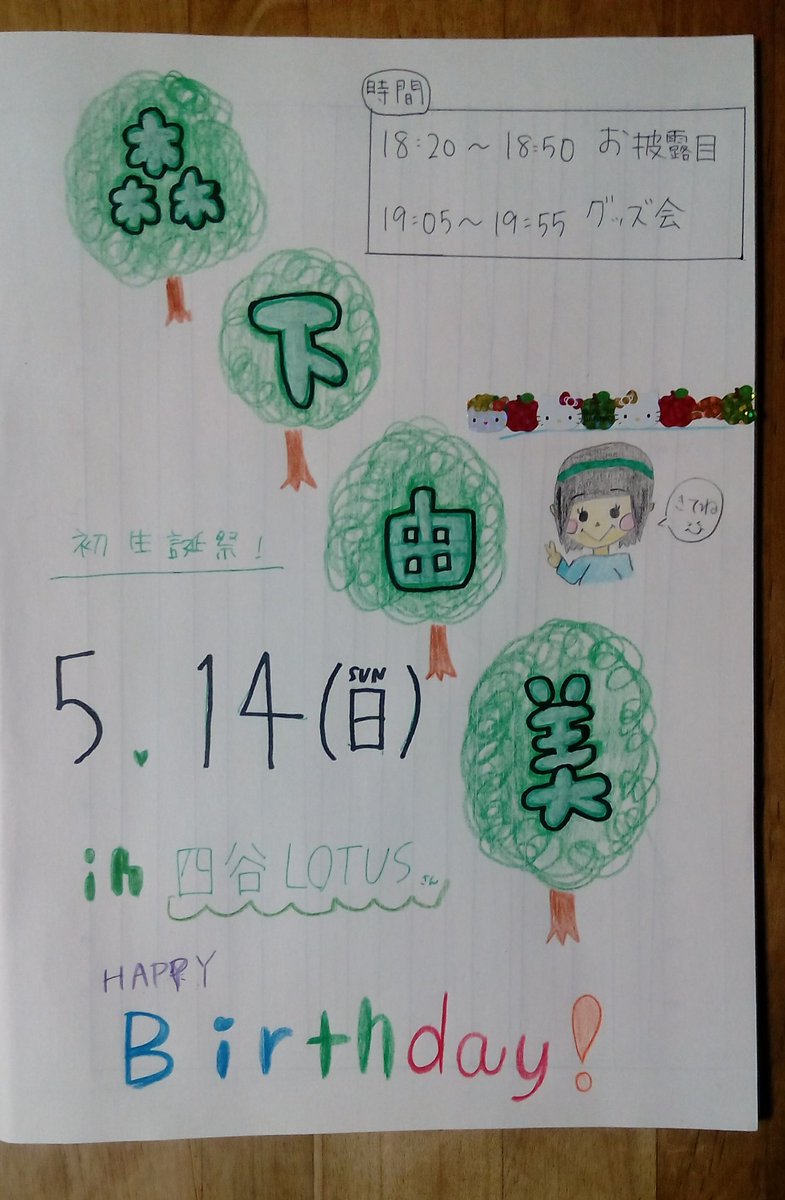 時間
18:20〜18:50 お披露目
19:05〜19:55 グッズ会
森
下
由
美
きてね
初生誕祭!
5.14(日)
SUN
in 四谷LOTUSさん
HAPPY
Birthday!